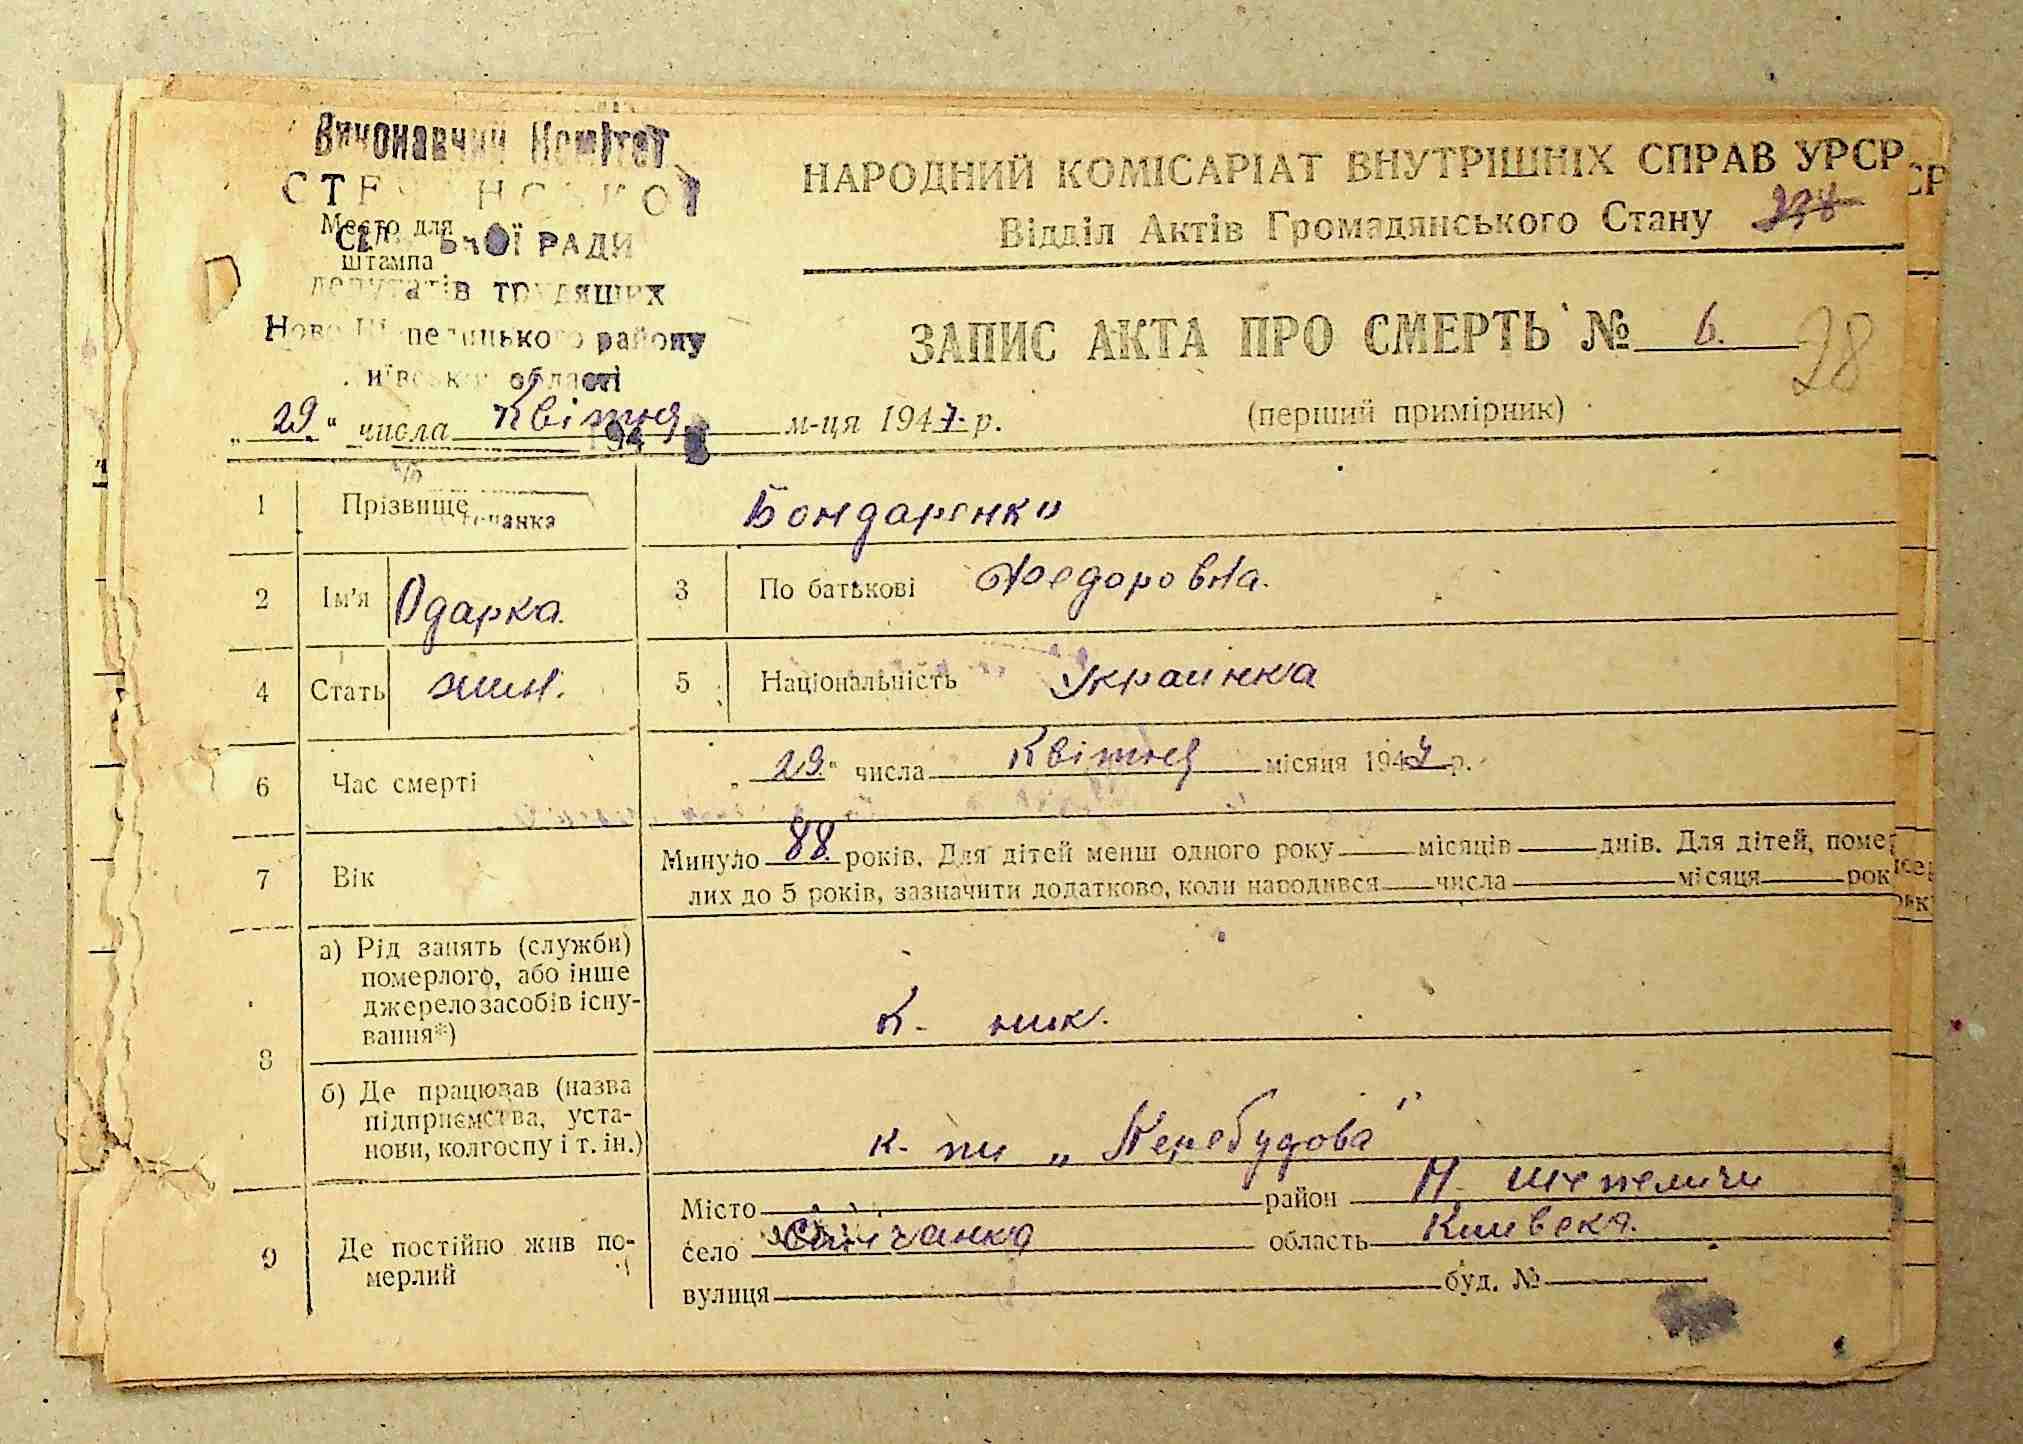 Виконавчий Комітет
НАРОДНИЙ КОМІСАРІАТ ВНУТРІШНІХ СПРАВ УРСР
Відділ Актів Громадянського Стану
Место для
штампа
РАДИ
депутатів трудящих
Ново Шепелицького району
Київської області
ЗАПИС АКТА ПРО СМЕРТЬ № 6.
28
„29.“ числа Квітня м-ця 1947. р.
(перший примірник)
194
1 Прізвище Бондаренко
2 Ім'я Одарка. 3 По батькові Федоровна.
4 Стать жин. 5 Національність Украинка
6 Час смерті „29.“ числа Квітня місяця 1947 р.
7 Вік Минуло 88. років. Для дітей менш одного року місяців днів. Для дітей, помер
лих до 5 років, зазначити додатково, коли народився числа місяця рок
8 а) Рід занять (служби)
померлого, або інше
джерело засобів існу-
вання*)
К- ник.
б) Де працював (назва
підприємства, уста-
нови, колгоспу і т. ін.)
к- пи „Перебудова"
9 Де постійно жив по-
мерлий
Місто район Н- Шепеличи
село область Киевска.
вулиця буд. №